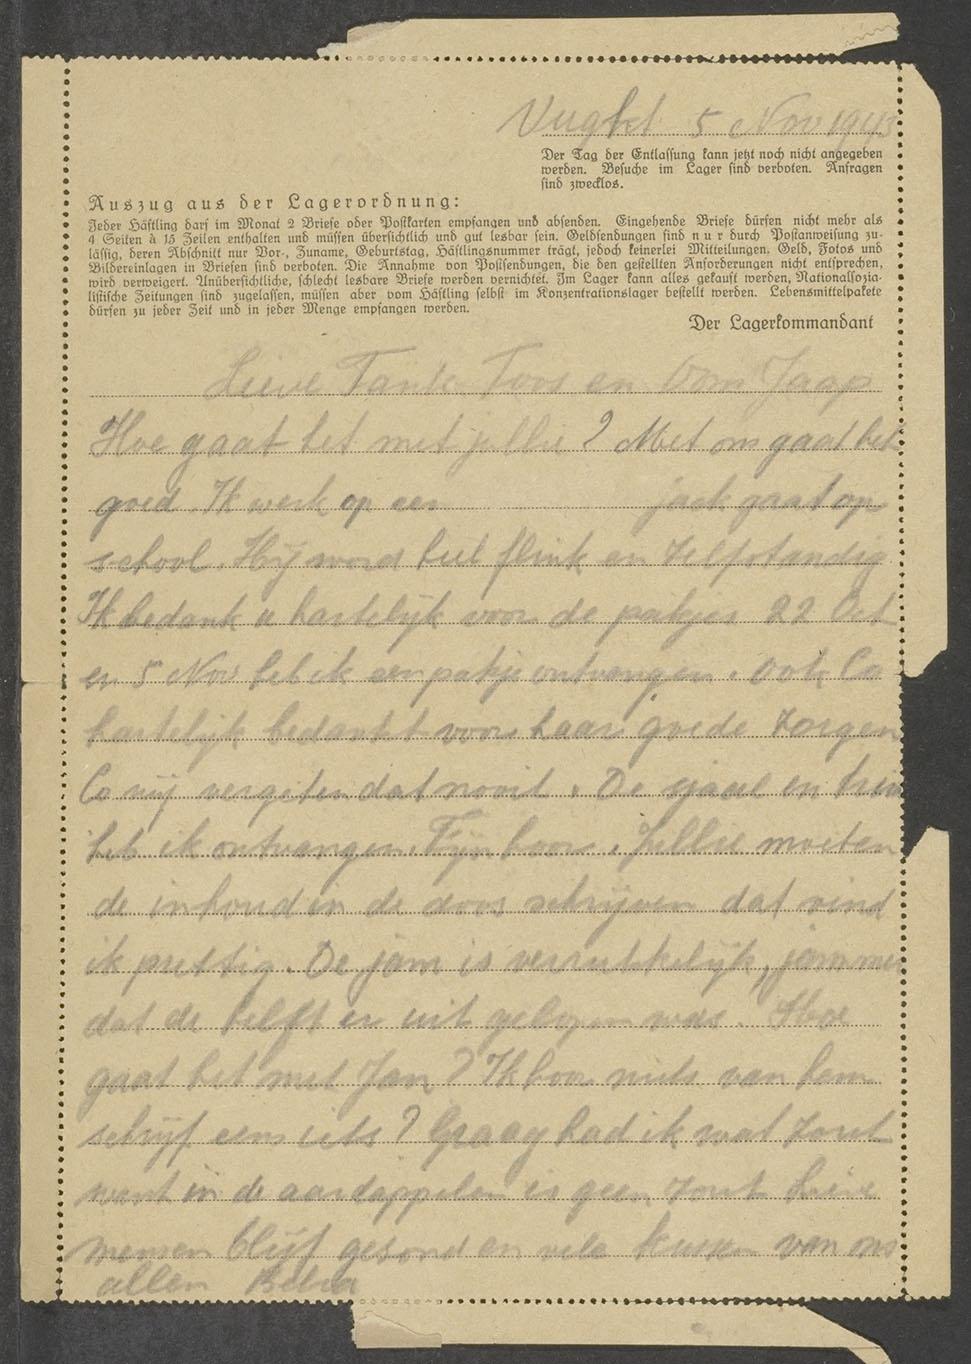 Vught 5 Nov 1943
Der Tag der Entlassung kann jetzt noch nicht angegeben
werden. Besuche im Lager sind verboten. Anfragen
sind zwecklos.
Auszug aus der Lagerordnung:
Jeder Häftling darf im Monat 2 Briefe oder Postkarten empfangen und absenden. Eingehende Briefe dürfen nicht mehr als
4 Seiten à 15 Zeilen enthalten und müssen übersichtlich und gut lesbar sein. Geldsendungen sind nur durch Postanweisung zu-
lässig, deren Abschnitt nur Vor-, Zuname, Geburtstag, Häftlingsnummer trägt, jedoch keinerlei Mitteilungen. Geld, Fotos und
Bildereinlagen in Briefen sind verboten. Die Annahme von Postsendungen, die den gestellten Anforderungen nicht entsprechen,
wird verweigert. Unübersichtliche, schlecht lesbare Briefe werden vernichtet. Im Lager kann alles gekauft werden, Nationalsozia-
listische Zeitungen sind zugelassen, müssen aber vom Häftling selbst im Konzentrationslager bestellt werden. Lebensmittelpakete
dürfen zu jeder Zeit und in jeder Menge empfangen werden.
Der Lagerkommandant
Lieve Tante Toos en Oom Jaap
Hoe gaat het met jullie? Met ons gaat het
goed. Ik werk op een jack gaat op
school. Hij word heel flink en zelfstandig
Ik bedank u hartelijk voor de pakjes 22 Oct
en 5 Nov heb ik een pakje ontvangen. Ook Co
hartelijk bedankt voor haar goede zorgen
Co wij vergeten dat nooit. De sjaal en
heb ik ontvangen. Fijn hoor. Jullie moeten
de inhoud in de doos schrijven dat vind
ik prettig. De jam is verrukkelijk, jammer
dat de helft er uit gelopen was. Hoe
gaat het met Jan? Ik hoor niets van hem
schrijf eens iets? Graag had ik wat zout
want in de aardappelen is geen zout. Lieve
mensen blijf gezond en vele kussen van ons
allen